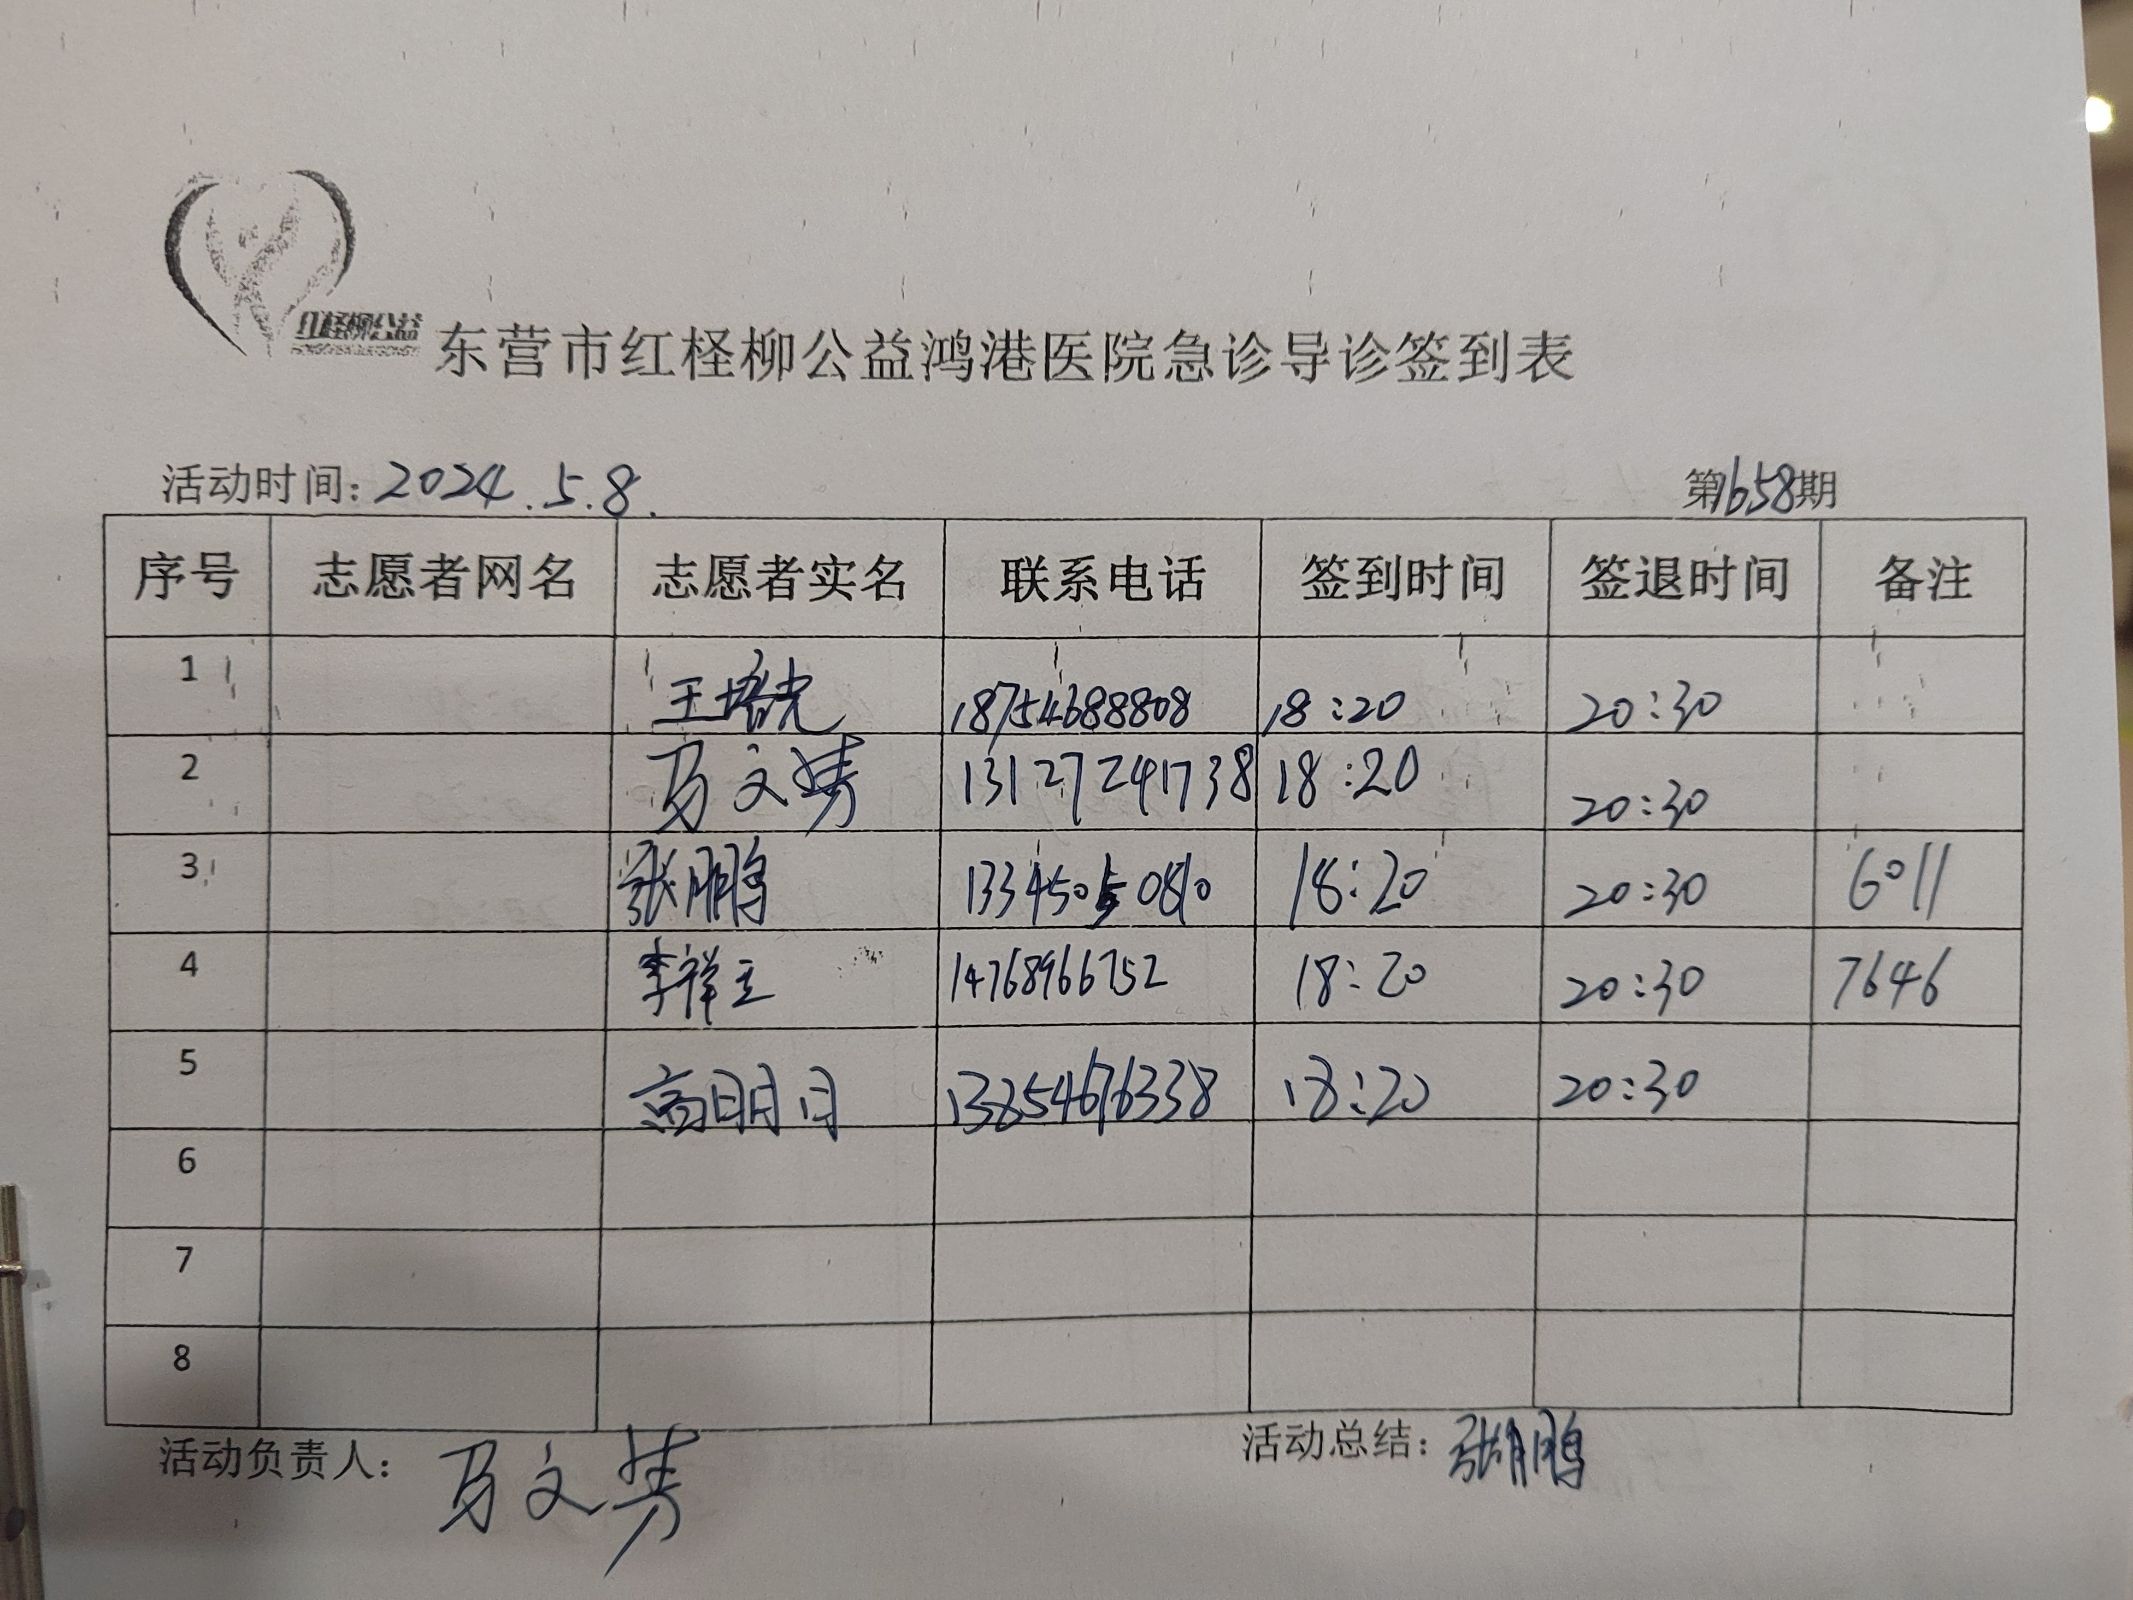 红柽柳公益
东营市红柽柳公益鸿港医院急诊导诊签到表
活动时间: 2024.5.8.
第1658期
序号 志愿者网名 志愿者实名 联系电话 签到时间 签退时间 备注
1 王培光 18754688808 18:20 20:30
2 马文 13127241738 18:20 20:30
3 张鹏 13345050810 18:20 20:30 6011
4 李祥玉 14768966752 18:20 20:30 7646
5 高明月 13854676338 18:20 20:30
6
7
8
活动负责人: 马文
活动总结: 张鹏